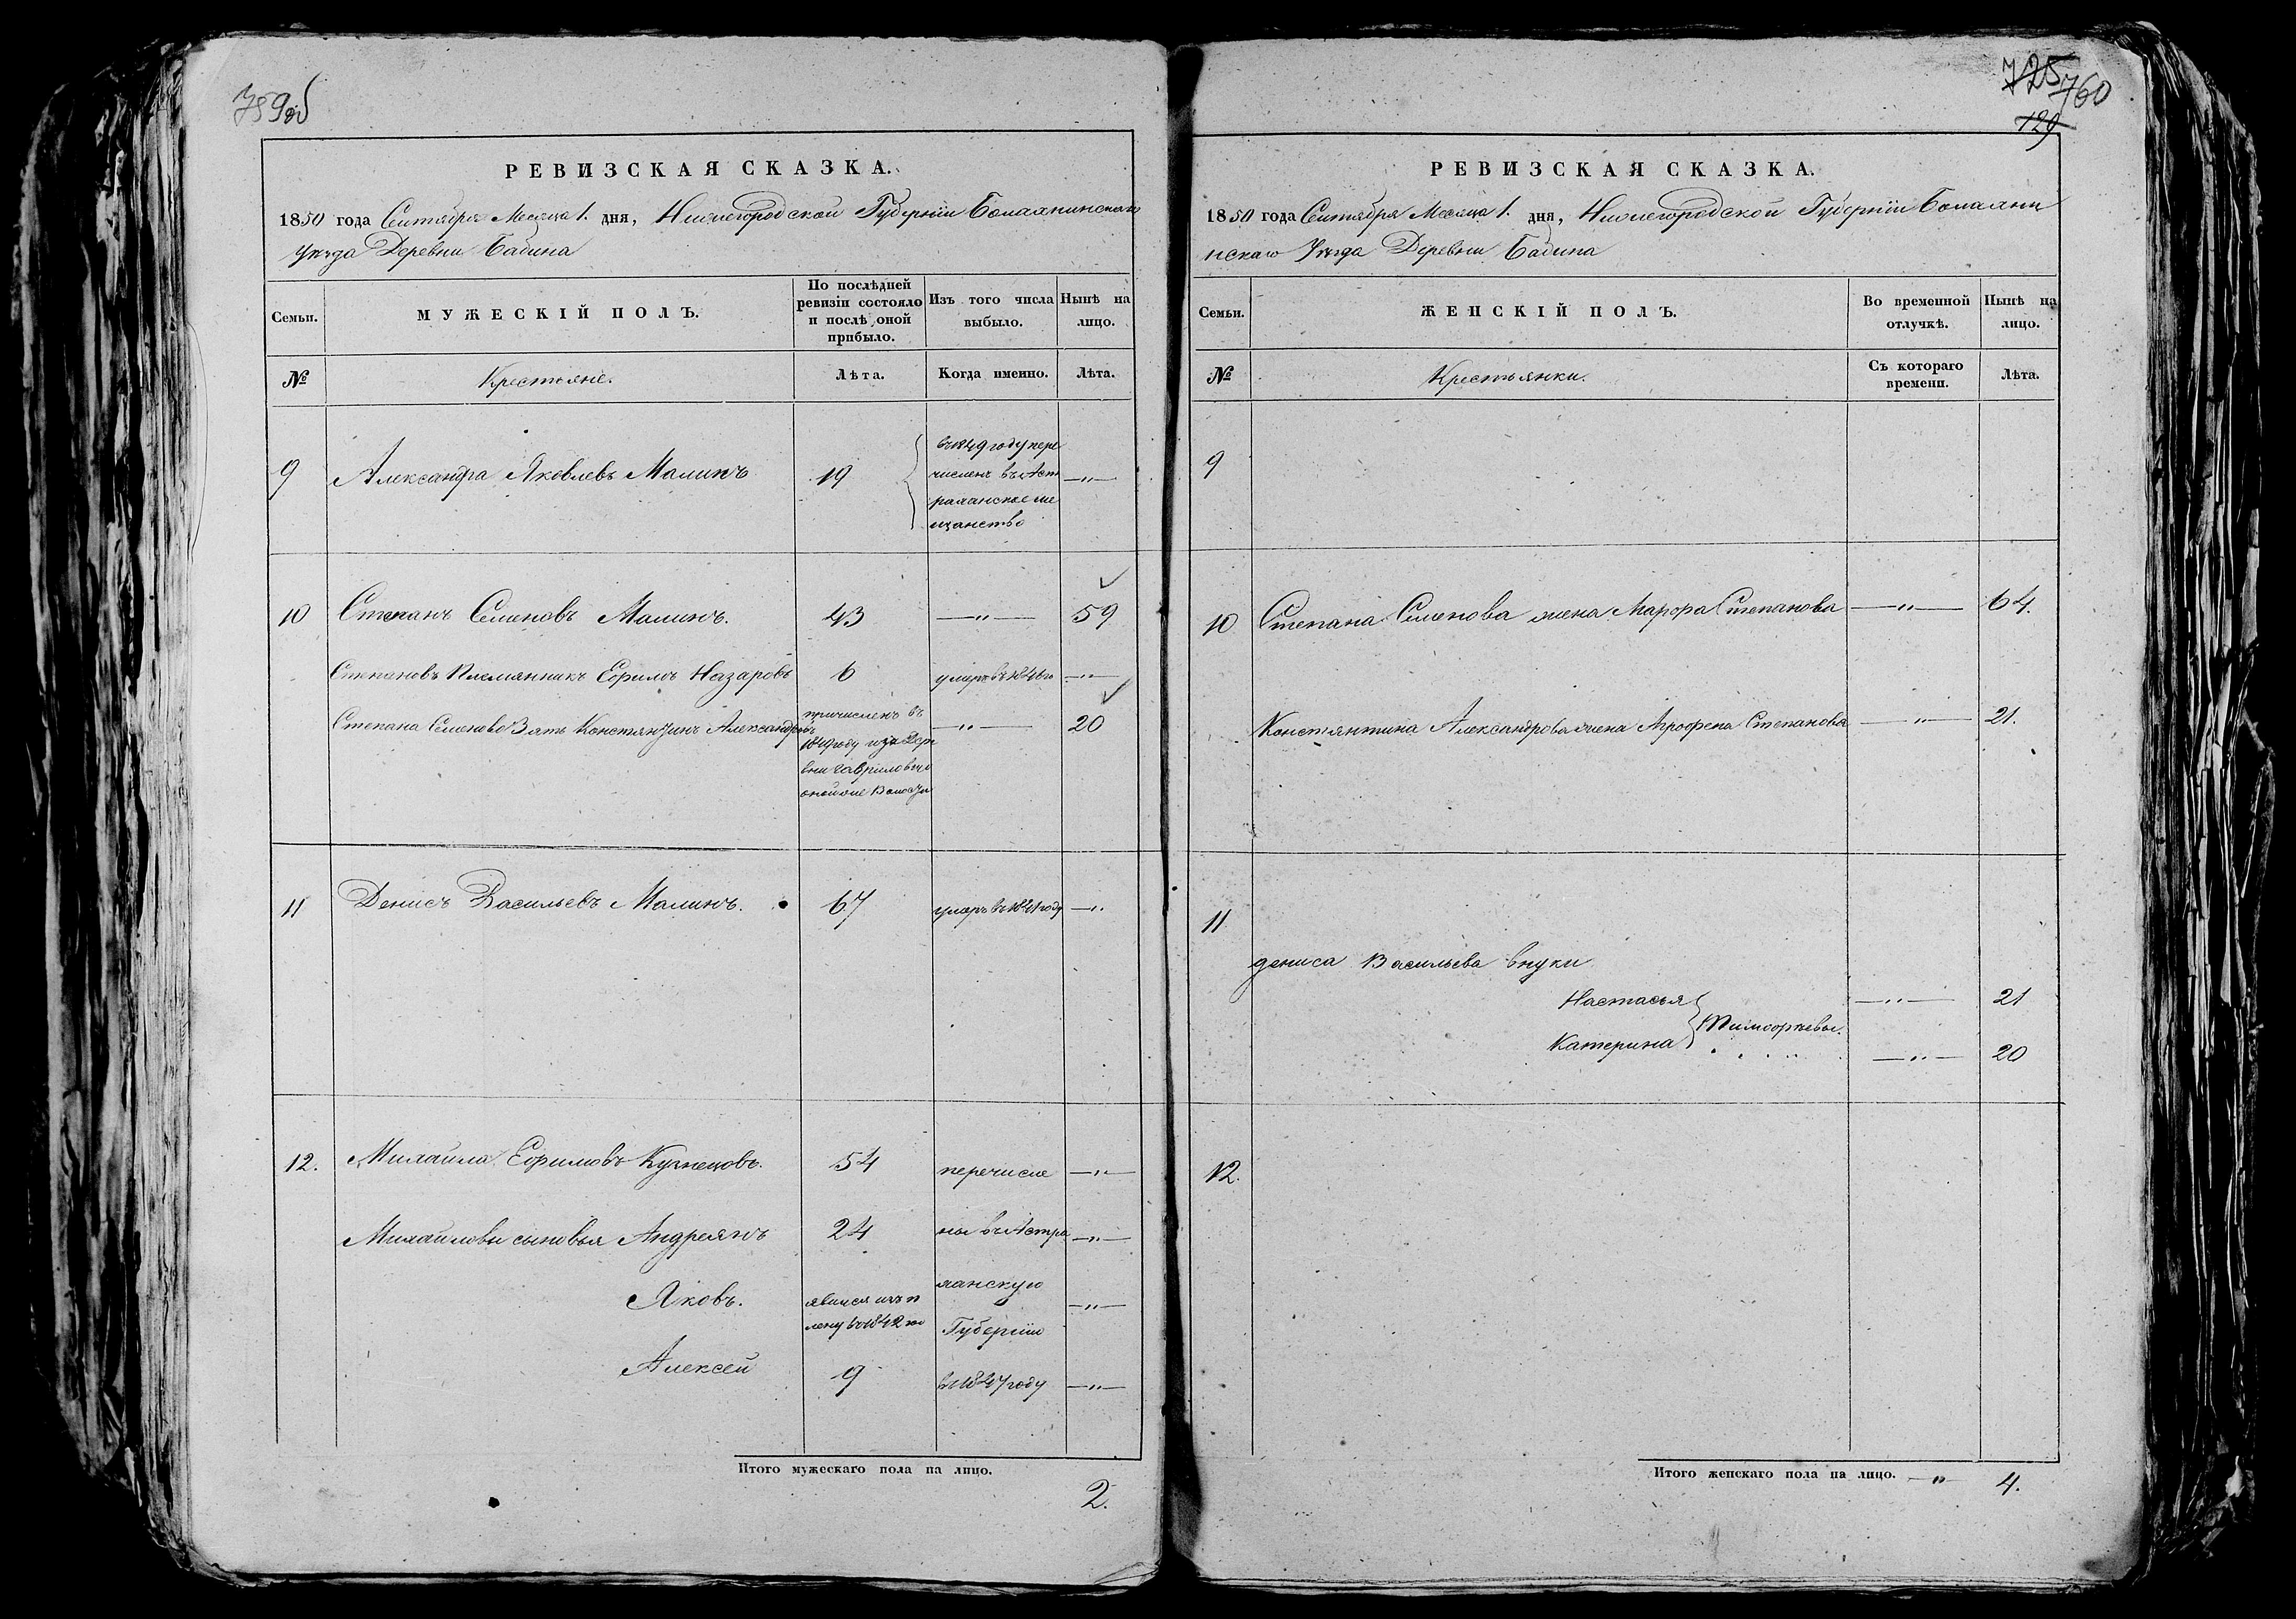 759об
РЕВИЗСКАЯ СКАЗКА.
1850 года Сентября Месяца 1. дня, Нижегородской Губерніи Балахнинскаго
Уѣзда Деревни Бабина
Семьи.
МУЖЕСКІЙ ПОЛЪ.
По послѣдней ревизіи состояло и послѣ оной прибыло.
Изъ того числа выбыло.
Нынѣ на лицо.
№
Крестьяне.
Лѣта.
Когда именно.
Лѣта.
9 Александра Яковлевъ Малинъ 19 —"—
въ 1849 году пере
численъ въ Аст
раханское ме
щанство
10 Степанъ Семеновъ Малинъ. 43 —"— 59
Степановъ Племянникъ Ефимъ Назаровъ 6 умеръ въ 1846 го —"—
Степана Семенова Зять Констянтинъ Александровъ —"— 20
причисленъ въ
1849 году изъ Дере
вни Гавриловы
оной же Волости
11 Денисъ Васильевъ Малинъ. 67 умеръ въ 1841 году —"
12. Михаила Ефимовъ Кузнецовъ. 54 перечисле —"—
Михаиловы сыновья Андреянъ 24 ны въ Астра —"—
ханскую
Яковъ. явился изъ п —"—
лену въ 1842 го Губернію
Алексей 9 въ 1847 году —"—
Итого мужескаго пола на лицо.
2.
725 760
129
РЕВИЗСКАЯ СКАЗКА.
1850 года Сентября Месяца 1. дня, Нижегородской Губерніи Балахни
нскаго Уѣзда Деревни Бабина
Семьи.
ЖЕНСКІЙ ПОЛЪ.
Во временной отлучкѣ.
Нынѣ на лицо.
№
Крестьянки.
Съ котораго времени.
Лѣта.
9
10 Степана Семенова жена Марфа Степанова —"— 64.
Констянтина Александрова жена Агрофена Степанова —"— 21.
11
дениса Васильева внуки
Настасья —"— 21
Тимофревы.
Катерина —"— 20
12.
Итого женскаго пола на лицо. —"— 4.